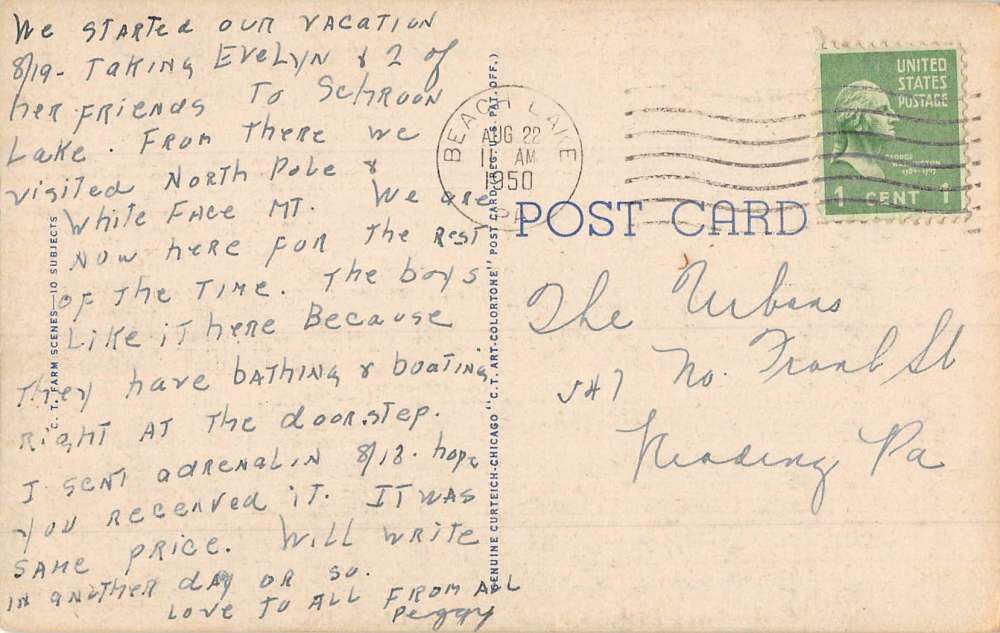 We started our vacation
8/19- taking Evelyn & 2 of
her friends to Schroon
Lake. From there we
visited North Pole &
White Face Mt. We are
now here for the rest
of the time. The boys
like it here because
they have bathing & boating
right at the doorstep.
I sent adrenalin 8/18. hope
you received it. It was
same price. Will write
in another day or so.
Love to all from all
Peggy
C. T. FARM SCENES—10 SUBJECTS
GENUINE CURTEICH-CHICAGO "C. T. ART-COLORTONE" POST CARD (REG. U.S. PAT. OFF.)
BEACH LAKE
AUG 22
11 AM
1950
PA
UNITED
STATES
POSTAGE
GEORGE
WASHINGTON
1 CENT 1
POST CARD
The Urbans
547 No. Front St
Reading Pa